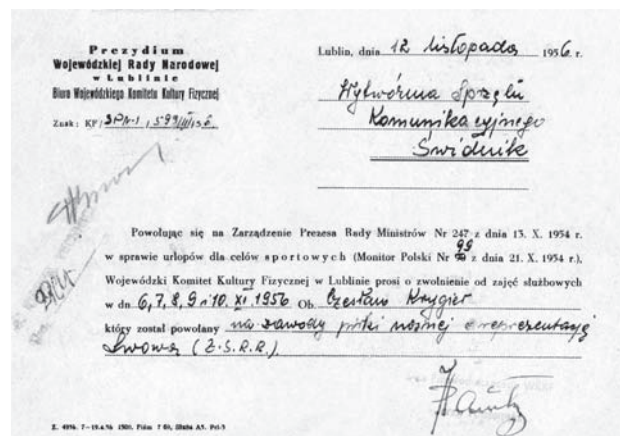 Prezydium
Wojewódzkiej Rady Narodowej
w Lublinie
Biuro Wojewódzkiego Komitetu Kultury Fizycznej
Znak: KF/
Lublin, dnia 12 listopada 1956 r.
Wytwórnia Sprzętu
Komunikacyjnego
Świdnik
Powołując się na Zarządzenie Prezesa Rady Ministrów Nr 247 z dnia 13. X. 1954 r.
w sprawie urlopów dla celów sportowych (Monitor Polski Nr 99 z dnia 21. X. 1954 r.),
Wojewódzki Komitet Kultury Fizycznej w Lublinie prosi o zwolnienie od zajęć służbowych
w dn 6, 7, 8, 9 i 10. XI. 1956 Ob. Czesław Krygier
który został powołany na zawody piłki nożnej z reprezentacją
Lwowa (Z.S.R.R.)